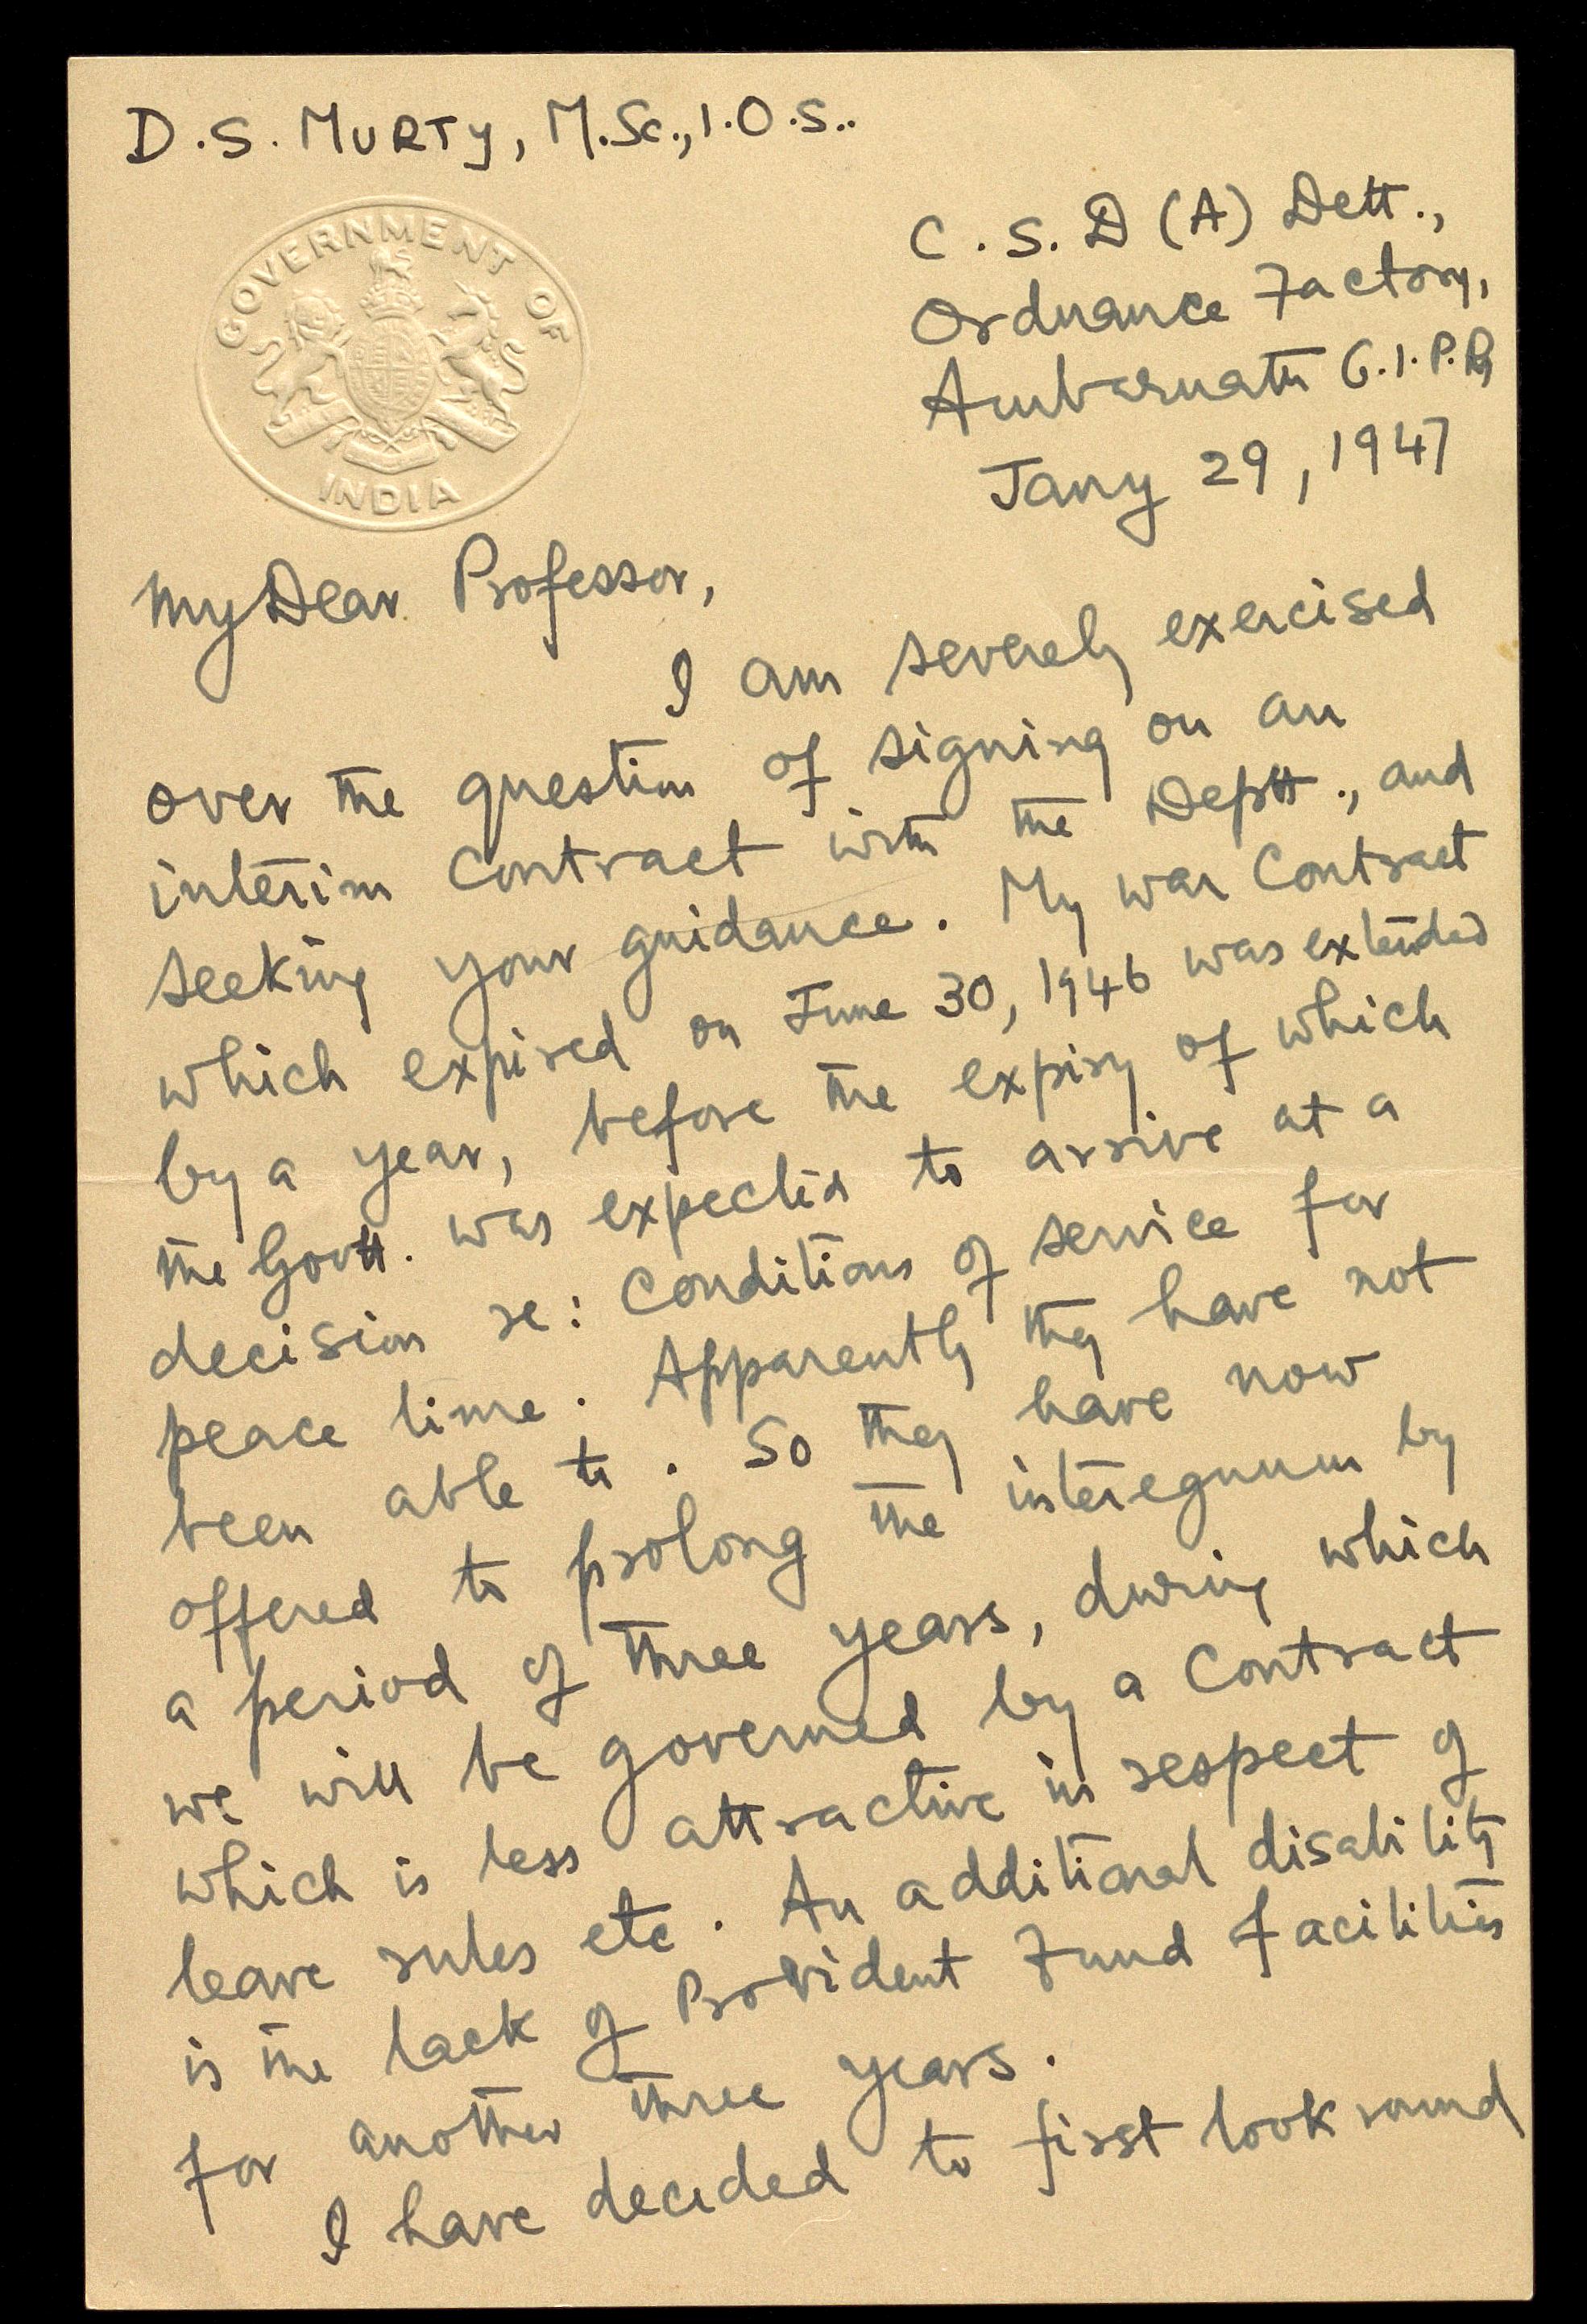 D.S. MURTY, M.Sc., I.O.S..
GOVERNMENT OF
INDIA
C.S.D (A) Dett.,
Ordnance Factory,
Ambarnath G.I.P.Ry
Jany 29, 1947
My Dear Professor,
I am severely exercised
over the question of signing on an
interim Contract with the Deptt., and
seeking your guidance. My war Contract
which expired on June 30, 1946 was extended
by a year, before the expiry of which
the Govtt. was expected to arrive at a
decision re: Conditions of service for
peace time. Apparently they have not
been able to. So they have now
offered to prolong the interegnum by
a period of three years, during which
we will be governed by a Contract
which is less attractive in respect of
leave rules etc. An additional disability
is the lack of Provident Fund Facilities
for another three years.
I have decided to first look round